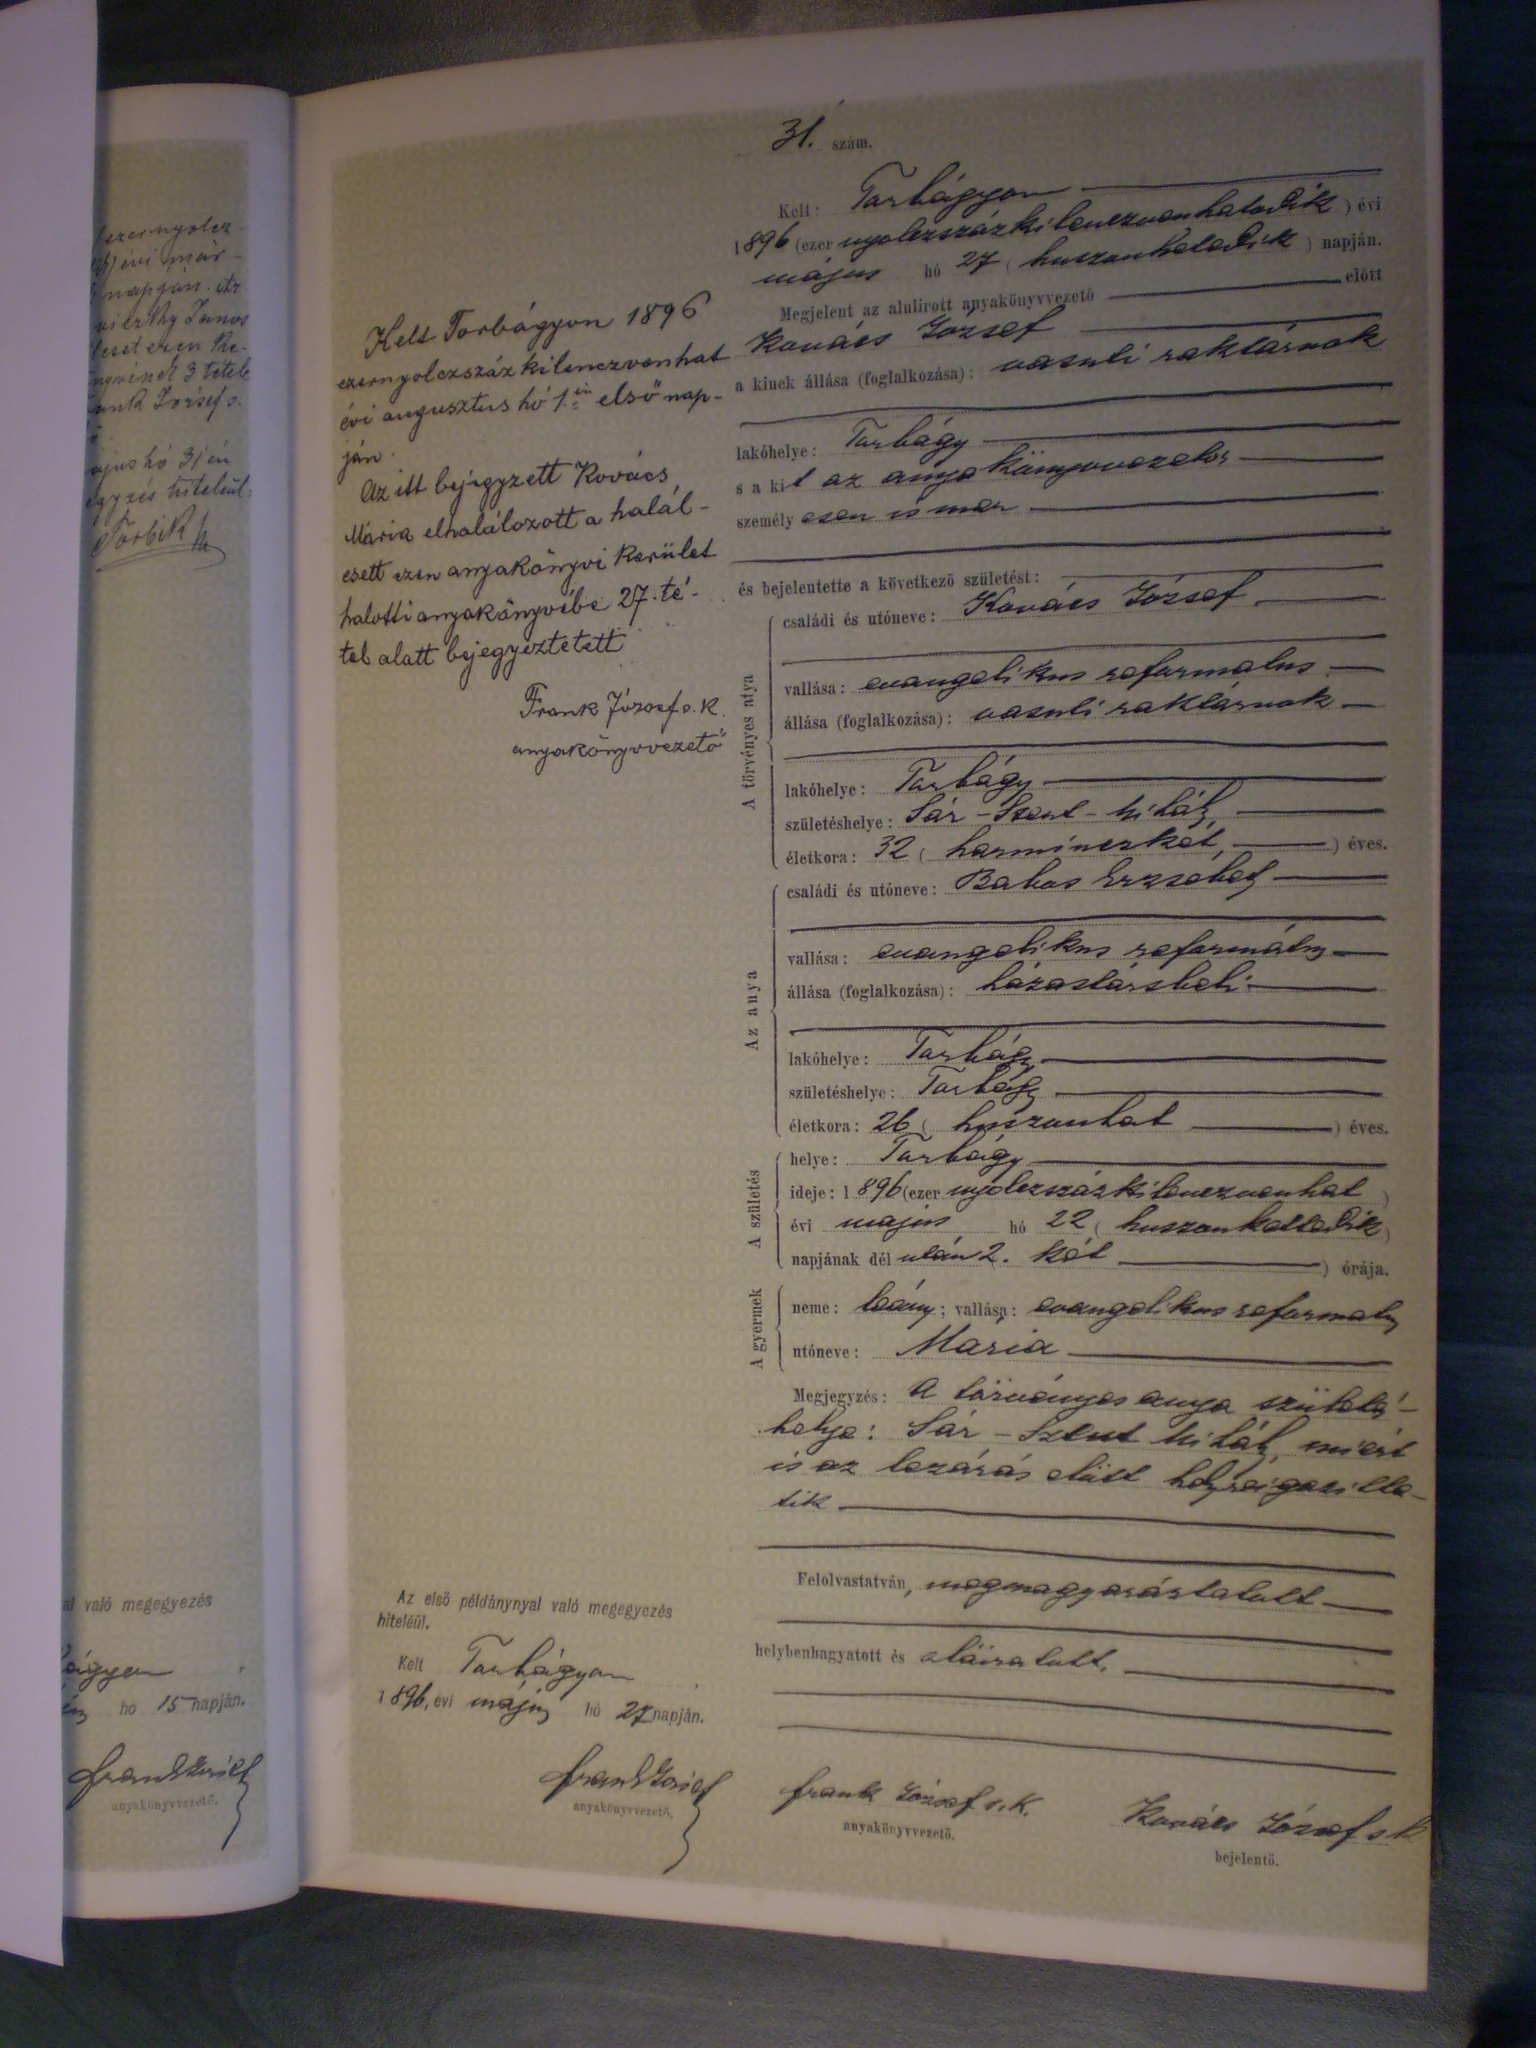 31. szám.
Kelt: Torbágyon
1896 (ezer nyolczszázkilenczvenhatodik) évi
május hó 27 (huszonhetedik) napján.
Megjelent az alulirott anyakönyvvezető előtt
Kovács József
a kinek állása (foglalkozása): vasuti raktárnok
lakóhelye: Torbágy
s a kit az anyakönyvvezető
személyesen ismer
és bejelentette a következő születést:
A törvényes atya
családi és utóneve: Kovács József
vallása: evangelikus reformatus
állása (foglalkozása): vasuti raktárnok
lakóhelye: Torbágy
születéshelye: Sár-Szent-Mihály
életkora: 32 (harminczkét) éves.
Az anya
családi és utóneve: Erzsébet
vallása: evangelikus református
állása (foglalkozása): házastársbeli
lakóhelye: Torbágy
születéshelye: Torbágy
életkora: 26 (huszonhat) éves.
A születés
helye: Torbágy
ideje: 1896 (ezer nyolczszázkilenczvenhat)
évi május hó 22 (huszonkettedik)
napjának dél után 2. két) órája.
A gyermek
neme: leány; vallása: evangelikus reformatus
utóneve: Mária
Megjegyzés: A törvényes anya születés-
helye: Sár-Szent Mihály, miért
is az lezárás előtt helyreigazitta-
tik
Felolvastatván, megmagyaráztatott
helybenhagyatott és aláiratott.
Frank József s.k.
anyakönyvvezető.
Kovács József s k
bejelentő.
Kelt Torbágyon 1896
ezernyolczszázkilenczvenhat
évi augusztus hó 1.én első nap-
ján.
Az itt bejegyzett Kovács
Mária elhalálozott a halál-
esett ezen anyakönyvi kerület
halotti anyakönyvébe 27. té-
tel alatt bejegyeztetett
Frank József s. k.
anyakönyvvezető
Az első példánynyal való megegyezés
hiteléül.
Kelt Torbágyon
1896. évi május hó 27 napján.
Frank József
anyakönyvvezető.
ezernyolcz-
évi már-
napján. Az
János
eset ezen ke-
3 tétele
József s.
hó 31 én
hiteléül:
Torbik
való megegyezés
ágyon
hó 15 napján.
Frank József
anyakönyvvezető.